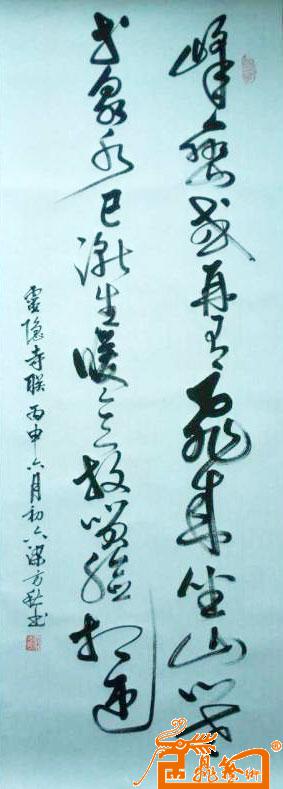 峰峦或再有飛来坐山门老
等泉水已漸生暖意放笑臉相迎
靈隐寺联丙申六月初六梁方秋书